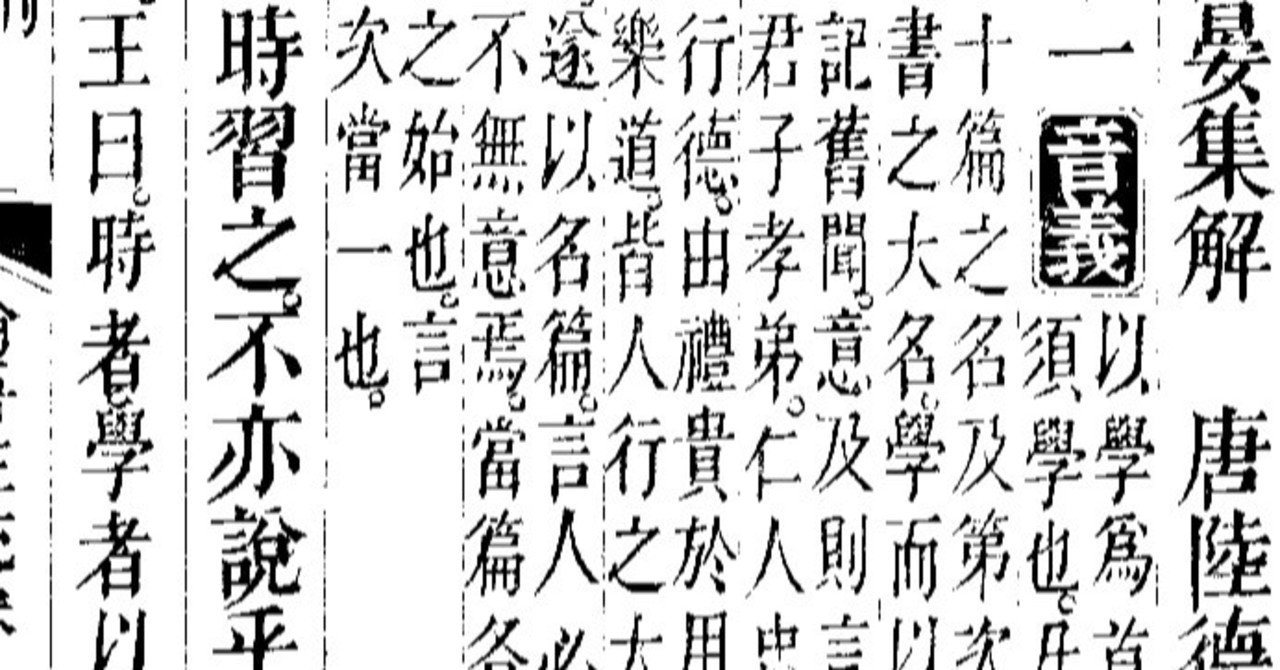 晏集解 唐陸德
一 音義 以學爲首
須學也。
十篇之名及第次
書之大名。學而以
記舊聞。意及則言
君子孝弟。仁人忠
行德。由禮貴於用
樂道。皆人行之大
遂以名篇。言人必
不無意焉。當篇各
之始也。言
次當一也。
時習之。不亦說乎
王曰。時者。學者以